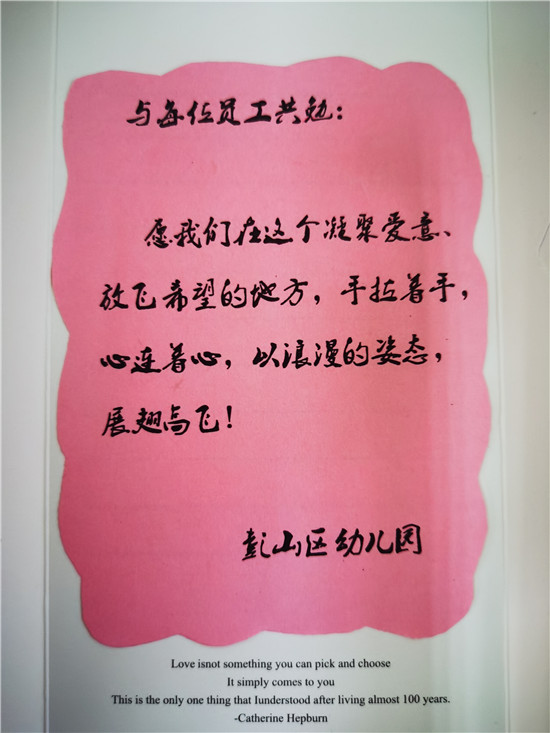 与每位员工共勉：
愿我们在这个凝聚爱意、
放飞希望的地方，手拉着手，
心连着心，以浪漫的姿态，
展翅高飞！
彭山区幼儿园
Love isnot something you can pick and choose
It simply comes to you
This is the only one thing that Iunderstood after living almost 100 years.
-Catherine Hepburn